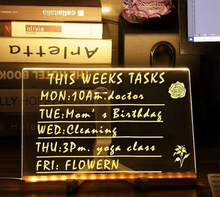 THIS WEEKS TASKS
MON:10Am.doctor
TUE:Mom's Birthday
WED:Cleaning
THU:3Pm. yoga class
FRI: FLOWERN